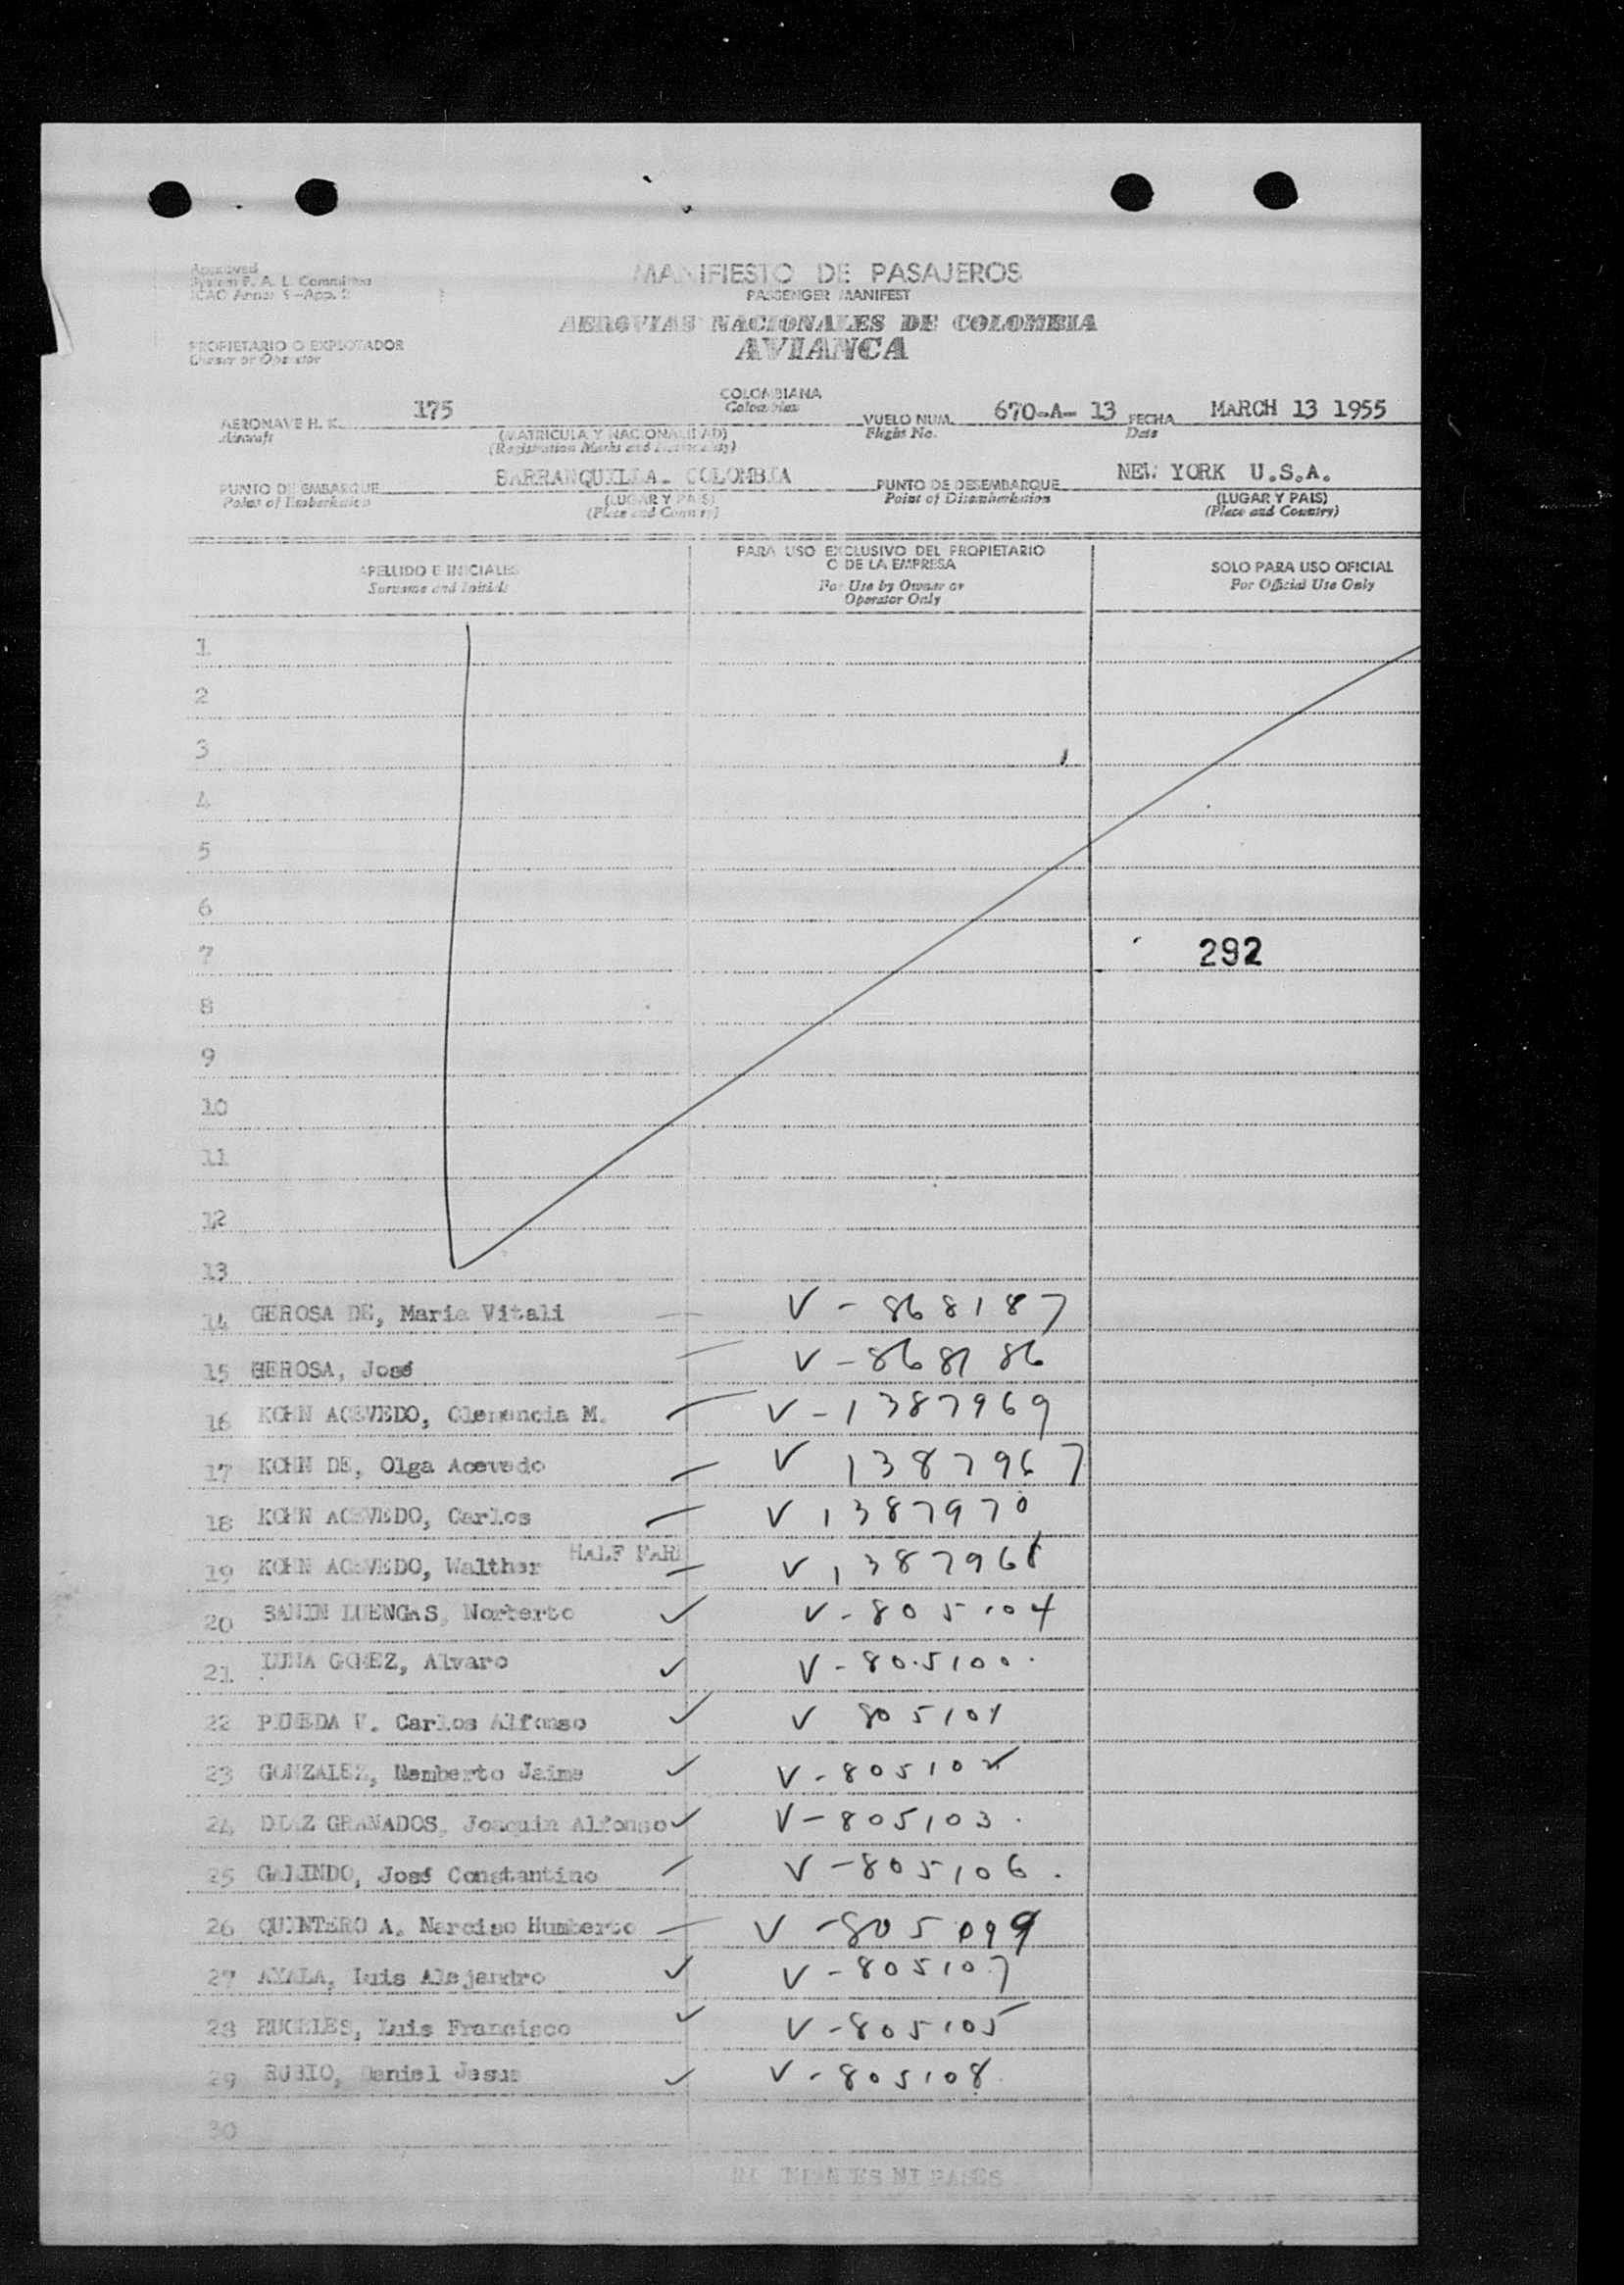 Approved
System F. A. L. Committee
ICAO Annex 9-App. 2
MANIFIESTO DE PASAJEROS
PASSENGER MANIFEST
AEROVIAS NACIONALES DE COLOMBIA
AVIANCA
PROPIETARIO O EXPLOTADOR
Owner or Operator
AERONAVE H. K. 175 COLOMBIANA VUELO NUM. 670-A- 13 FECHA MARCH 13 1955
Aircraft Colombian Flight No. Date
(MATRICULA Y NACIONALIDAD)
(Registration Marks and Nationality)
PUNTO DE EMBARQUE BARRANQUILLA- COLOMBIA PUNTO DE DESEMBARQUE NEW YORK U.S.A.
Point of Embarkation (LUGAR Y PAIS) Point of Disembarkation (LUGAR Y PAIS)
(Place and Country) (Place and Country)
APELLIDO E INICIALES PARA USO EXCLUSIVO DEL PROPIETARIO O DE LA EMPRESA SOLO PARA USO OFICIAL
Surname and Initials For Use by Owner or Operator Only For Official Use Only
1
2
3
4
5
6
7 292
8
9
10
11
12
13
14 GEROSA DE, Maria Vitali V - 868187
15 GEROSA, José V - 868186
16 KOHN ACEVEDO, Clemencia M. V - 1387969
17 KOHN DE, Olga Acevedo V 1387967
18 KOHN ACEVEDO, Carlos V 1387970
19 KOHN ACEVEDO, Walther HALF FARE V 1387968
20 SANIN LUENGAS, Norberto V - 805104
21 LUNA GOMEZ, Alvaro V - 805100
22 PINEDA V. Carlos Alfonso V 805101
23 GONZALEZ, Memberto Jaime V - 805102
24 DIAZ GRANADOS, Joaquin Alfonso V - 805103
25 GALINDO, José Constantino V - 805106
26 QUINTERO A. Narciso Humberto V - 805099
27 AYALA, Luis Alejandro V - 805107
28 RUGELES, Luis Francisco V - 805105
29 RUBIO, Daniel Jesus V - 805108
30